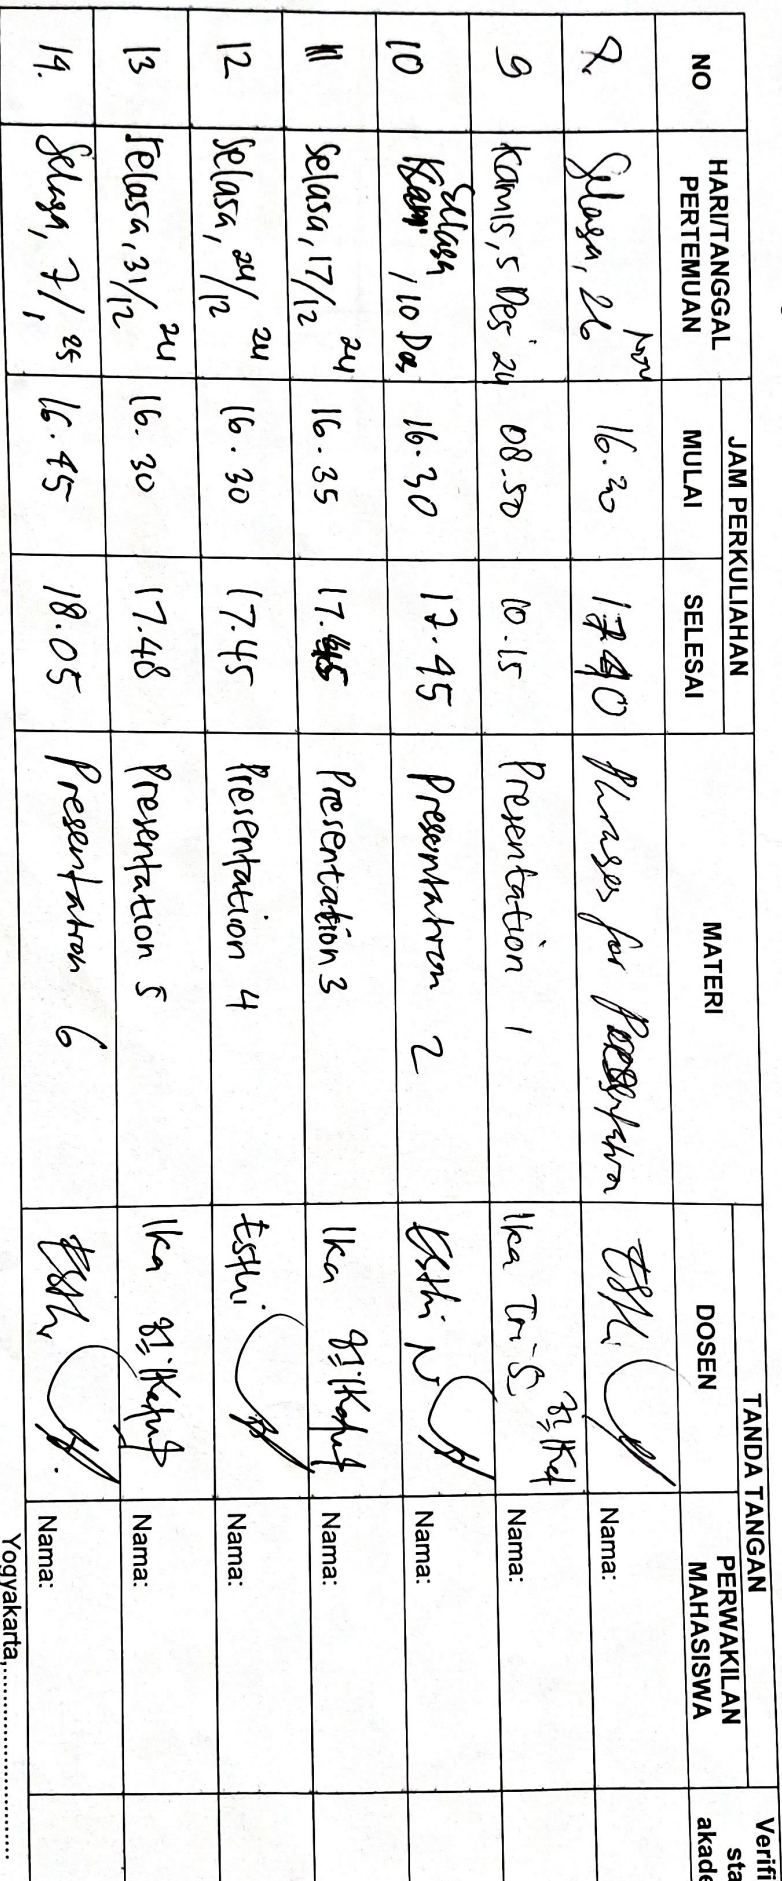 NO HARI/TANGGAL PERTEMUAN JAM PERKULIAHAN MULAI SELESAI MATERI TANDA TANGAN DOSEN PERWAKILAN MAHASISWA Verifi sta akade
8. Selasa, 26 Nov 16.30 17.40 Phrases for Presentation Esthi Nama:
9 Kamis, 5 Des '24 08.50 10.15 Presentation 1 Ika Tri S. Nama:
10 Selasa, 10 Des 16.30 17.45 Presentation 2 Esthi N Nama:
11 Selasa, 17/12 24 16.35 17.45 Presentation 3 Ika Nama:
12 Selasa, 24/12 24 16.30 17.45 Presentation 4 Esthi Nama:
13 Selasa, 31/12 24 16.30 17.48 Presentation 5 Ika Nama:
14. Selasa, 7/1 25 16.45 18.05 Presentation 6 Esthi Nama:
Yogyakarta,..............................